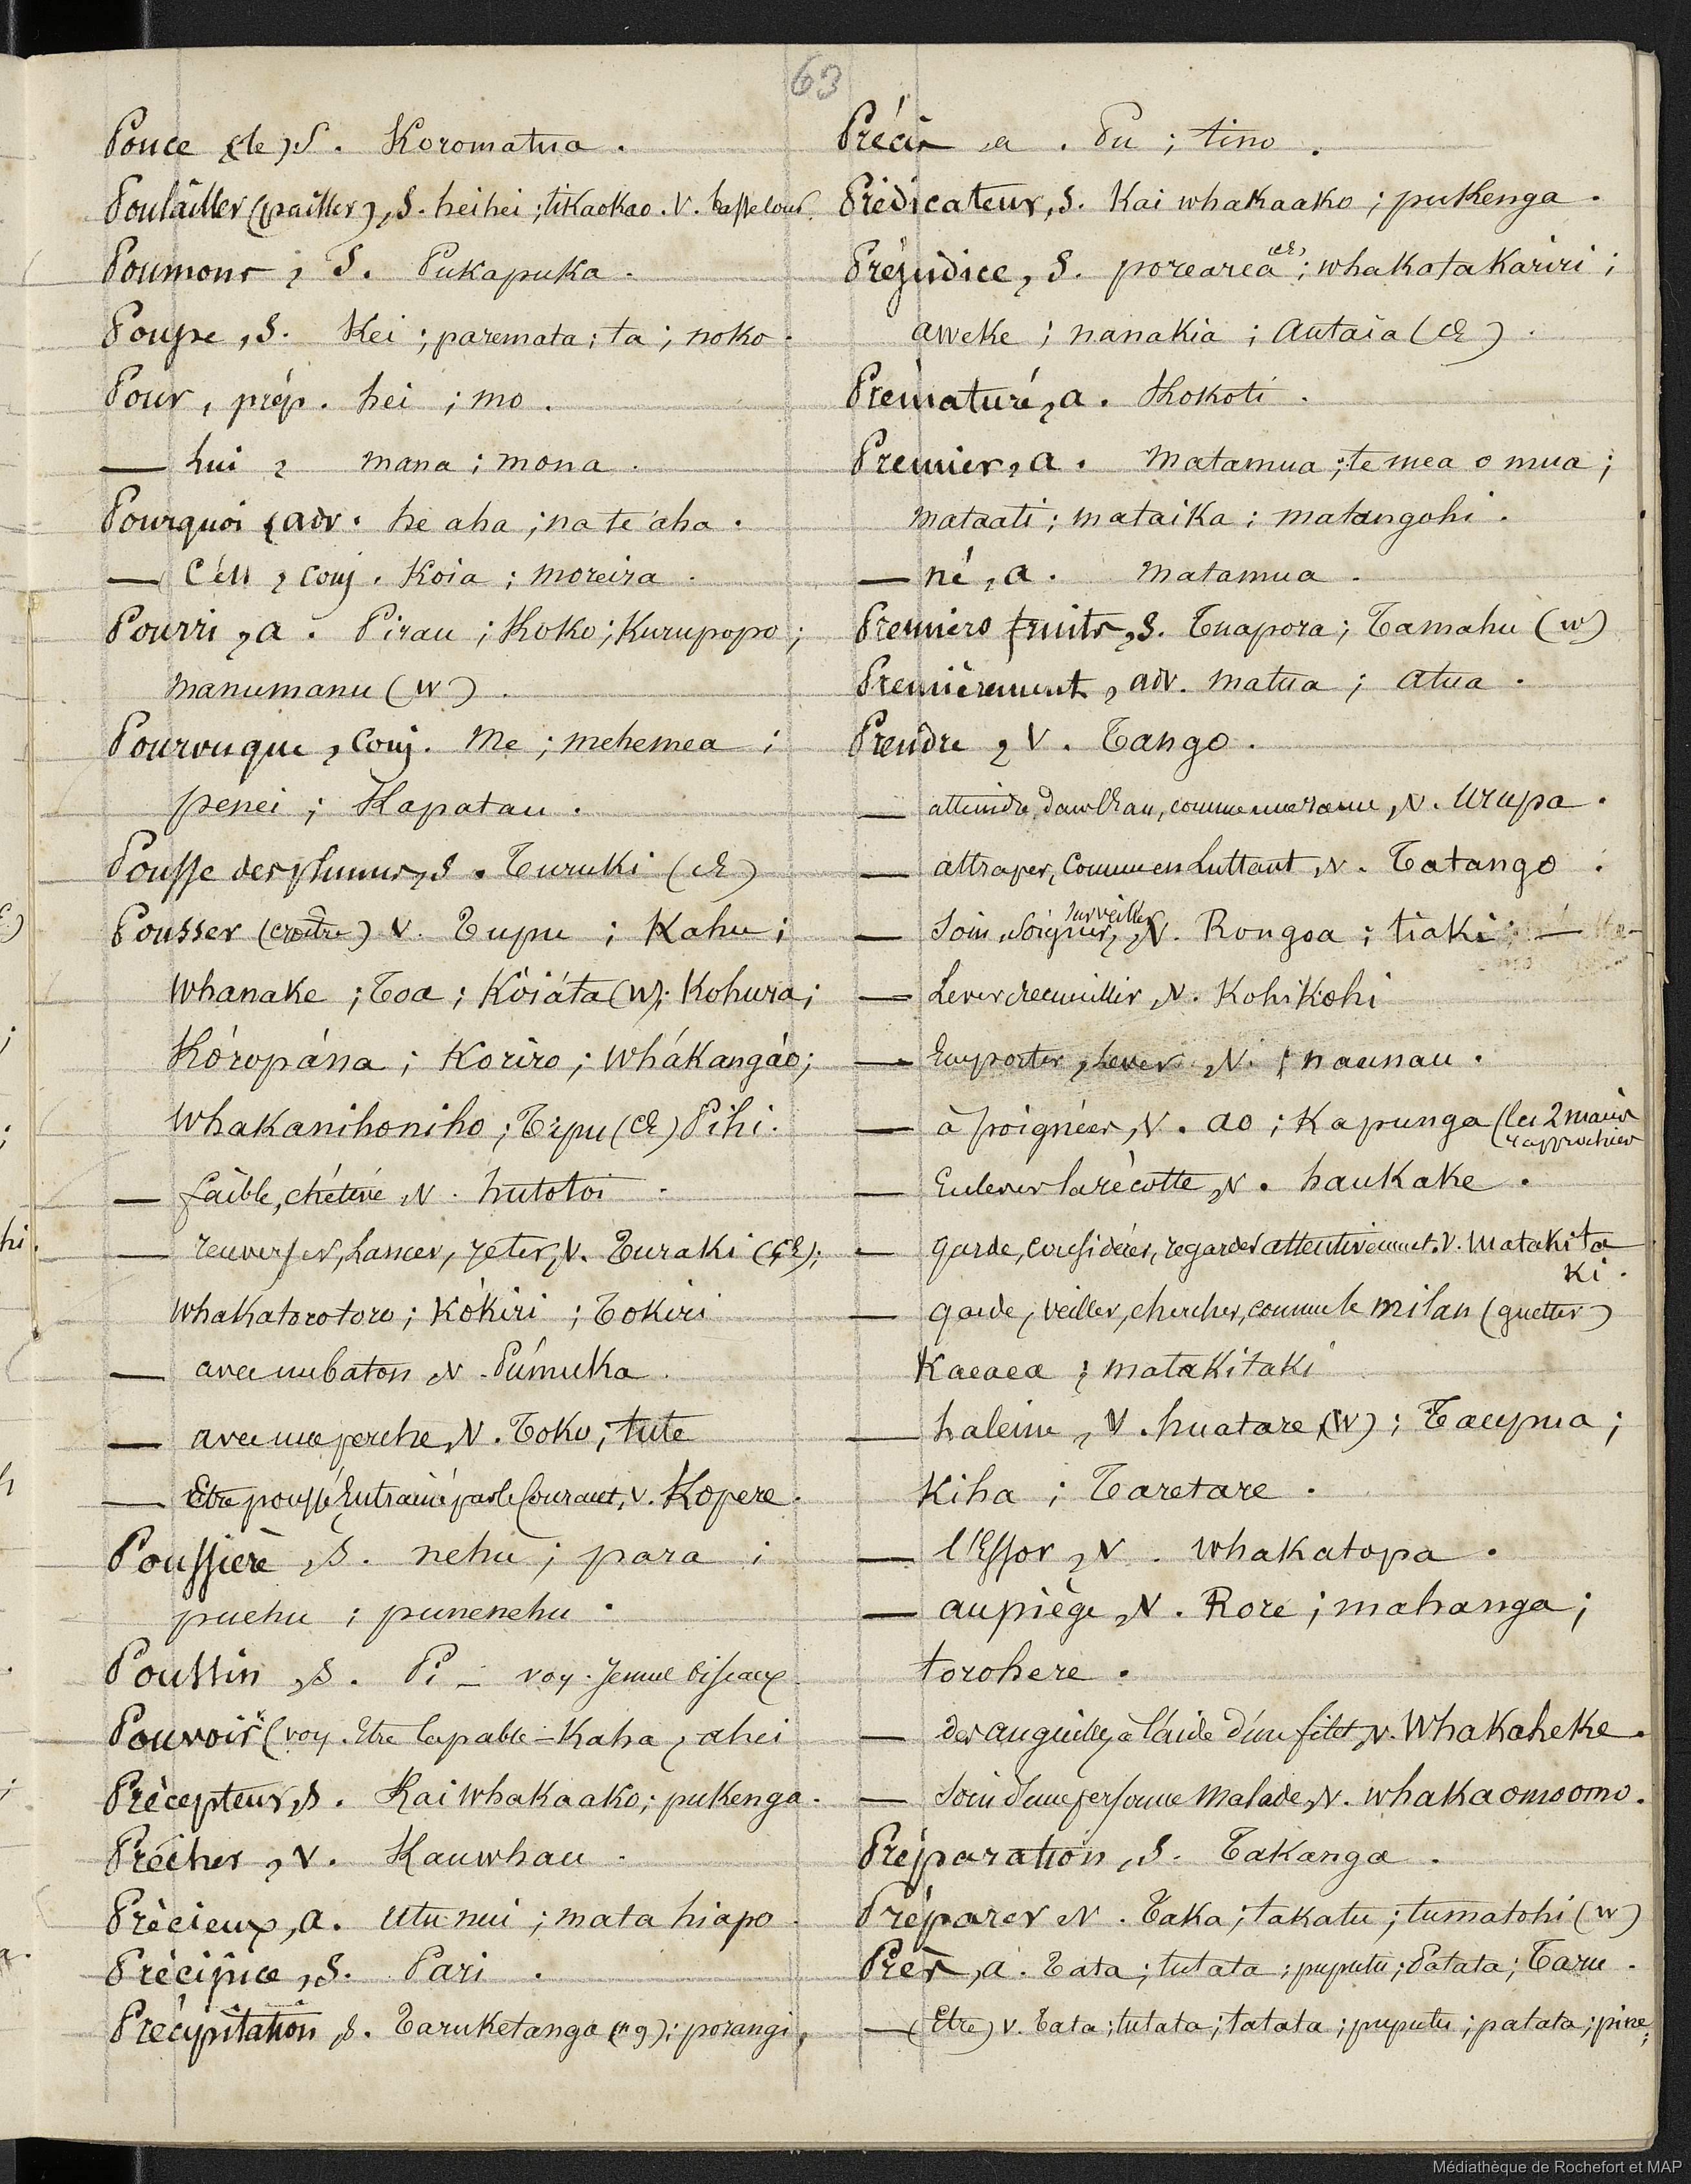 63
Pouce (le) S. Koromatua.
Poulailler (pailler), S. heihei ; tikaokao. V.
Poumons, S. Pukapuka.
Poupe, S. Kei ; paremata ; ta ; noko.
Pour, prép. hei ; mo.
— lui, mana ; mona.
Pourquoi, adv. he aha ; na te aha.
— C'est, conj. Koia ; moreira.
Pourri, a. Pirau ; Koko ; Kurupopo ;
manumanu (W).
Pourvuque, Conj. Me ; mehemea ;
penei ; Kapatau.
Pousse des plumes, S. Turuki (E)
Pousser (croître) V. Tupu ; Kahu ;
Whanake ; Toa ; Kòiáta (W) ; Kohura ;
Kóropána ; Koriro ; Whákangáo ;
Whakanihoniho ; Tipu (E) Pihi.
— faible, chétive, V. hutotoi.
— renverser, Lancer, jeter, V. Turaki (E) ;
Whakatorotoro ; Kókiri ; Tokiri
— avec un baton, V. Púmuka.
— avec une perche, V. Toko ; tute
— Etre poussé, Entrainé par le Courant, V. Kopere.
Poussière, S. nehu ; para ;
puehu ; punenehu.
Poussin, S. Pi – voy. Jeune Oiseaux.
Pouvoir (voy. Etre Capable – Kaha, ahei
Précepteur, S. Kai Whakaako ; pukenga.
Prêcher, V. Kauwhau.
Précieux, a. Utu nui ; mata hiapo.
Précipice, S. Pari.
Précipitation, S. Taruketanga (ng) ; porangi,
Précis, a. Pu ; tino.
Prédicateur, S. Kai whakaako ; pukenga.
Préjudice, S. porearea (E) ; whakatakariri ;
aweke ; nanakia ; Autaia (E).
Prématuré, a. Kokoti.
Premier, a. Matamua ; te mea o mua ;
mataati ; mataika ; matangohi.
— né, a. Matamua.
Premiers fruits, S. Tuapora ; Tamahu (W)
Premièrement, adv. Matua ; Atua.
Prendre, V. Tango.
— atteindre dans l'Eau, comme une rame, V. Urupa.
— attraper, Comme en Luttant, V. Tatango.
— Soin, Soigner, surveiller, V. Rongoa ; tiaki ; —
— Lever, recueillir, V. Kohikohi
— Emporter, Lever, V. naunau.
— à poignées, V. ao ; Kapunga (les 2 mains
rapprochées
— Enlever la récolte, V. haukake.
— garde, considérer, regarder attentivement. V. Matakita
ki.
— garde, veiller, chercher, comme le milan (guetter)
Kaeaea ; matakitaki
— haleine, V. huatare (W) ; Taupua ;
Kiha ; Taretare.
— l'Essor, V. whakatopa.
— au piège, V. Rore ; mahanga ;
torohere.
— des anguilles à l'aide d'un filet, V. Whakaheke.
— Soin d'une personne Malade, V. whakaomoomo.
Préparation, S. Takanga.
Préparer, V. Taka ; takatu ; tumatohi (W)
Près, a. Tata ; tutata ; puputu ; Patata ; Taru.
— (Etre) V. Tata ; tutata ; tatata ; puputu ; patata ; pine ;
Médiathèque de Rochefort et MAP